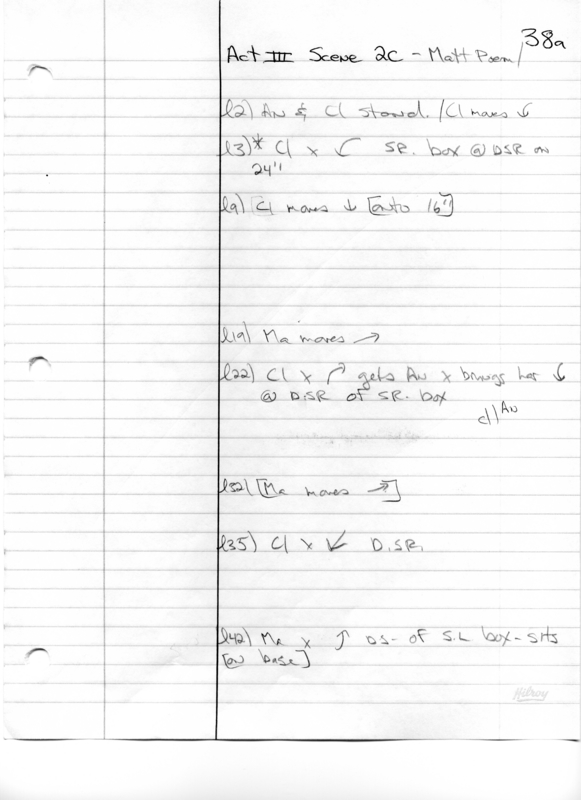 38a
Act III Scene 2C - Matt Poem
l2) An & Cl stand. / Cl moves ↓
l3)* Cl x SR. box @ DSR on
24"
l9) Cl moves ↓ [onto 16"]
l19) Ma moves →
l22) Cl x gets An x brings her ↓
@ D.SR of SR. box
Cl) An
l32) [Ma moves ↗]
l35) Cl x ↙ D.SR.
l42) Ma x DS- of S.L box - sits
[on base]
Hilroy